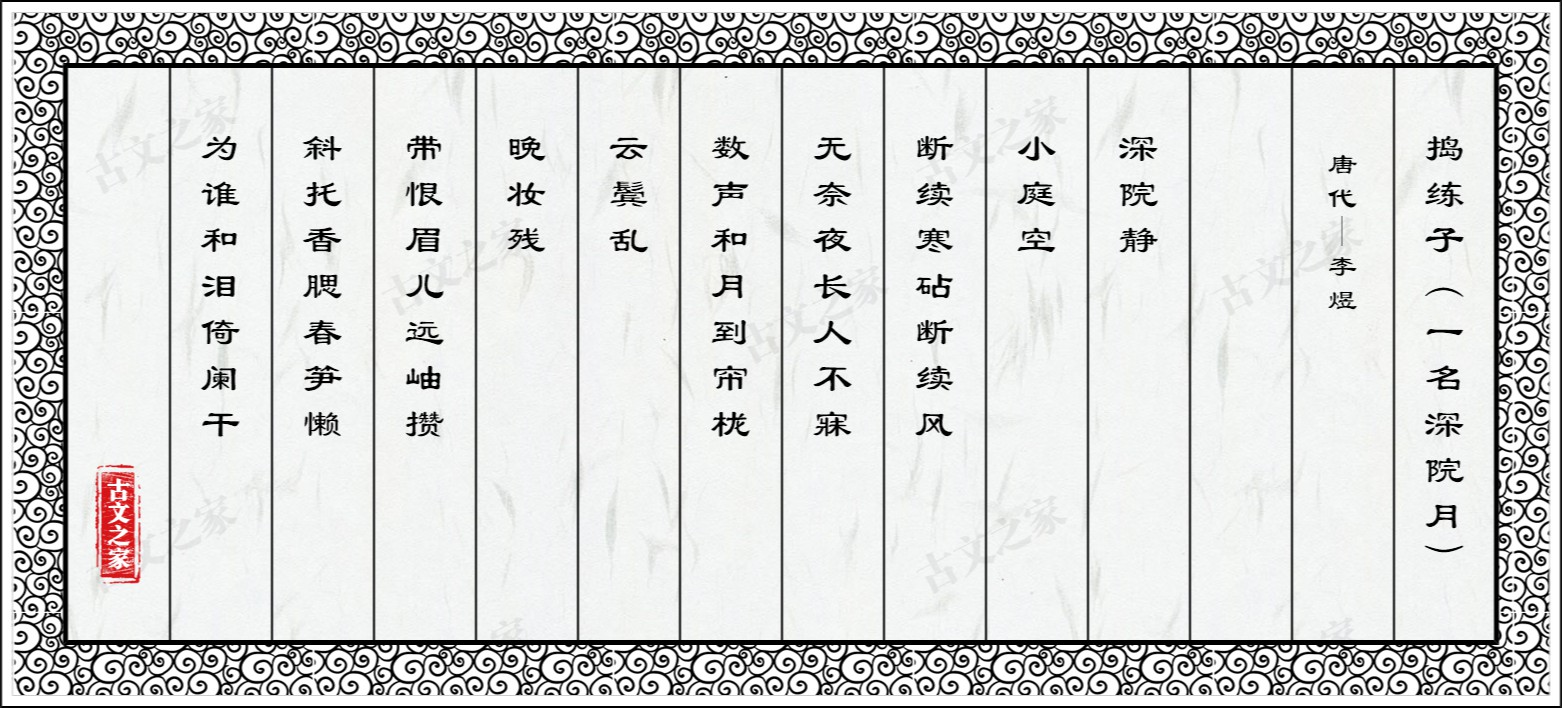 捣练子（一名深院月）
唐代—李煜
深院静
小庭空
断续寒砧断续风
无奈夜长人不寐
数声和月到帘栊
云鬓乱
晚妆残
带恨眉儿远岫攒
斜托香腮春笋懒
为谁和泪倚阑干
古文之家